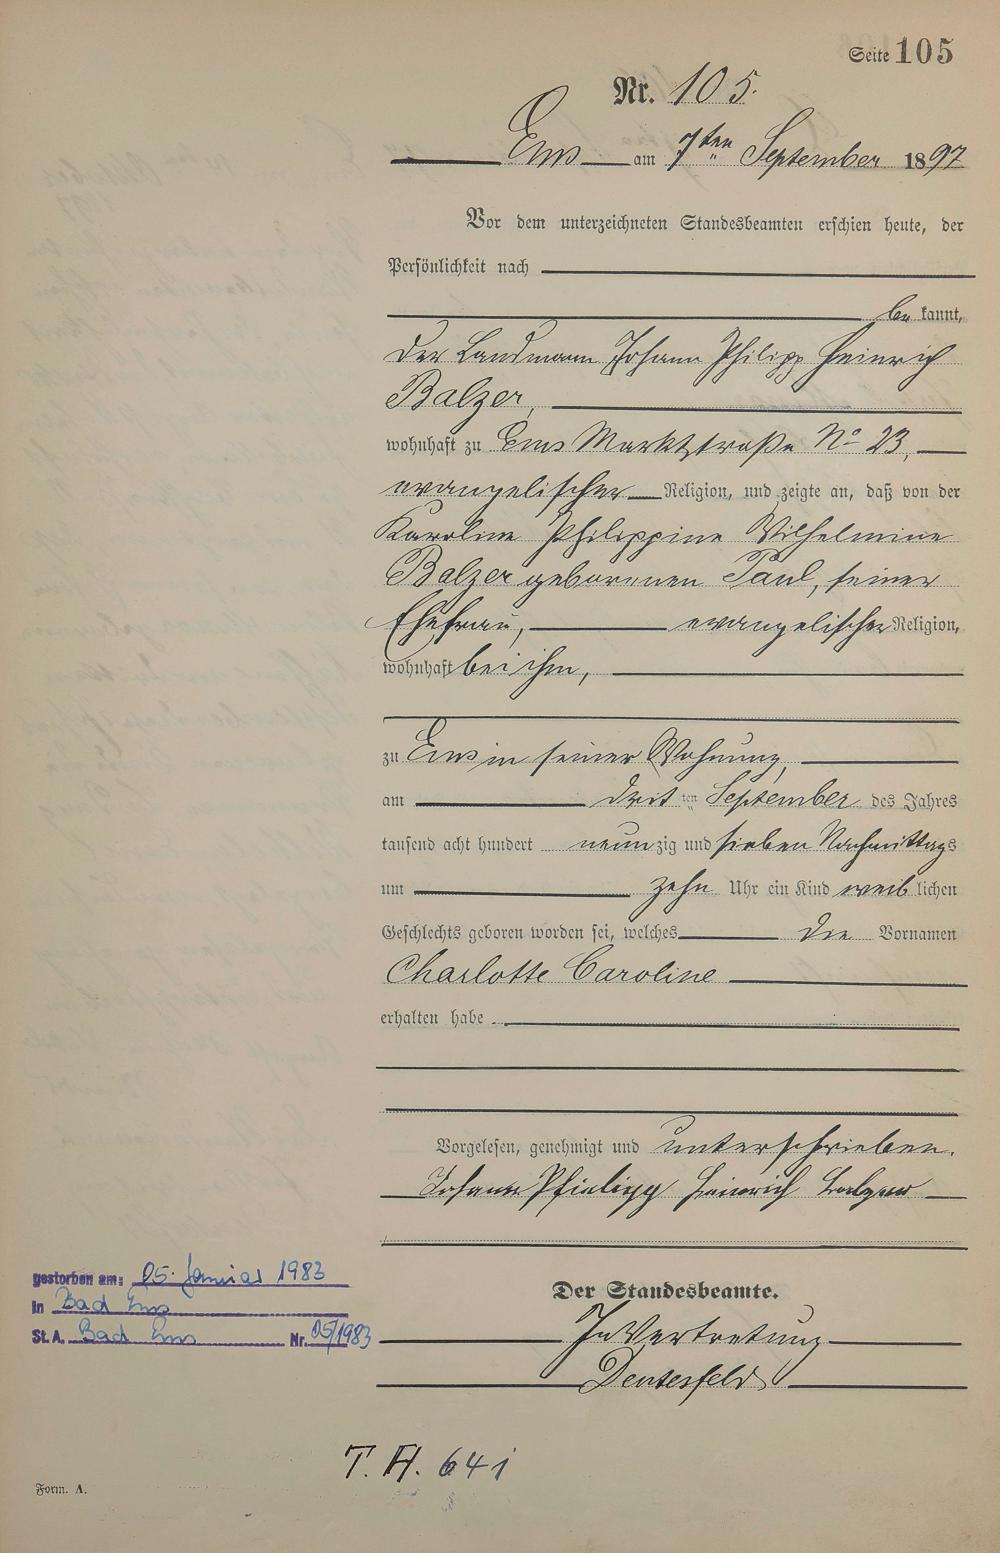 Seite 105
Nr. 105.
Ems am 7ten September 1897
Vor dem unterzeichneten Standesbeamten erschien heute, der
Persönlichkeit nach
bekannt,
der Landmann Johann Philipp Heinrich
Balzer,
wohnhaft zu Ems Marktstraße No 23,
evangelischer Religion, und zeigte an, daß von der
Karoline Philippine Wilhelmine
Balzer geborenen Paul, seiner
Ehefrau, evangelischer Religion,
wohnhaft bei ihm,
zu Ems in seiner Wohnung,
am dritten September des Jahres
tausend acht hundert neunzig und sieben Nachmittags
um zehn Uhr ein Kind weiblichen
Geschlechts geboren worden sei, welches die Vornamen
Charlotte Caroline
erhalten habe
Vorgelesen, genehmigt und unterschrieben.
Johann Philipp Heinrich Balzer
Der Standesbeamte.
In Vertretung
gestorben am: 05. Januar 1983
in Bad Ems
St. A. Bad Ems Nr. 05/1983
T. A. 641
Form. A.